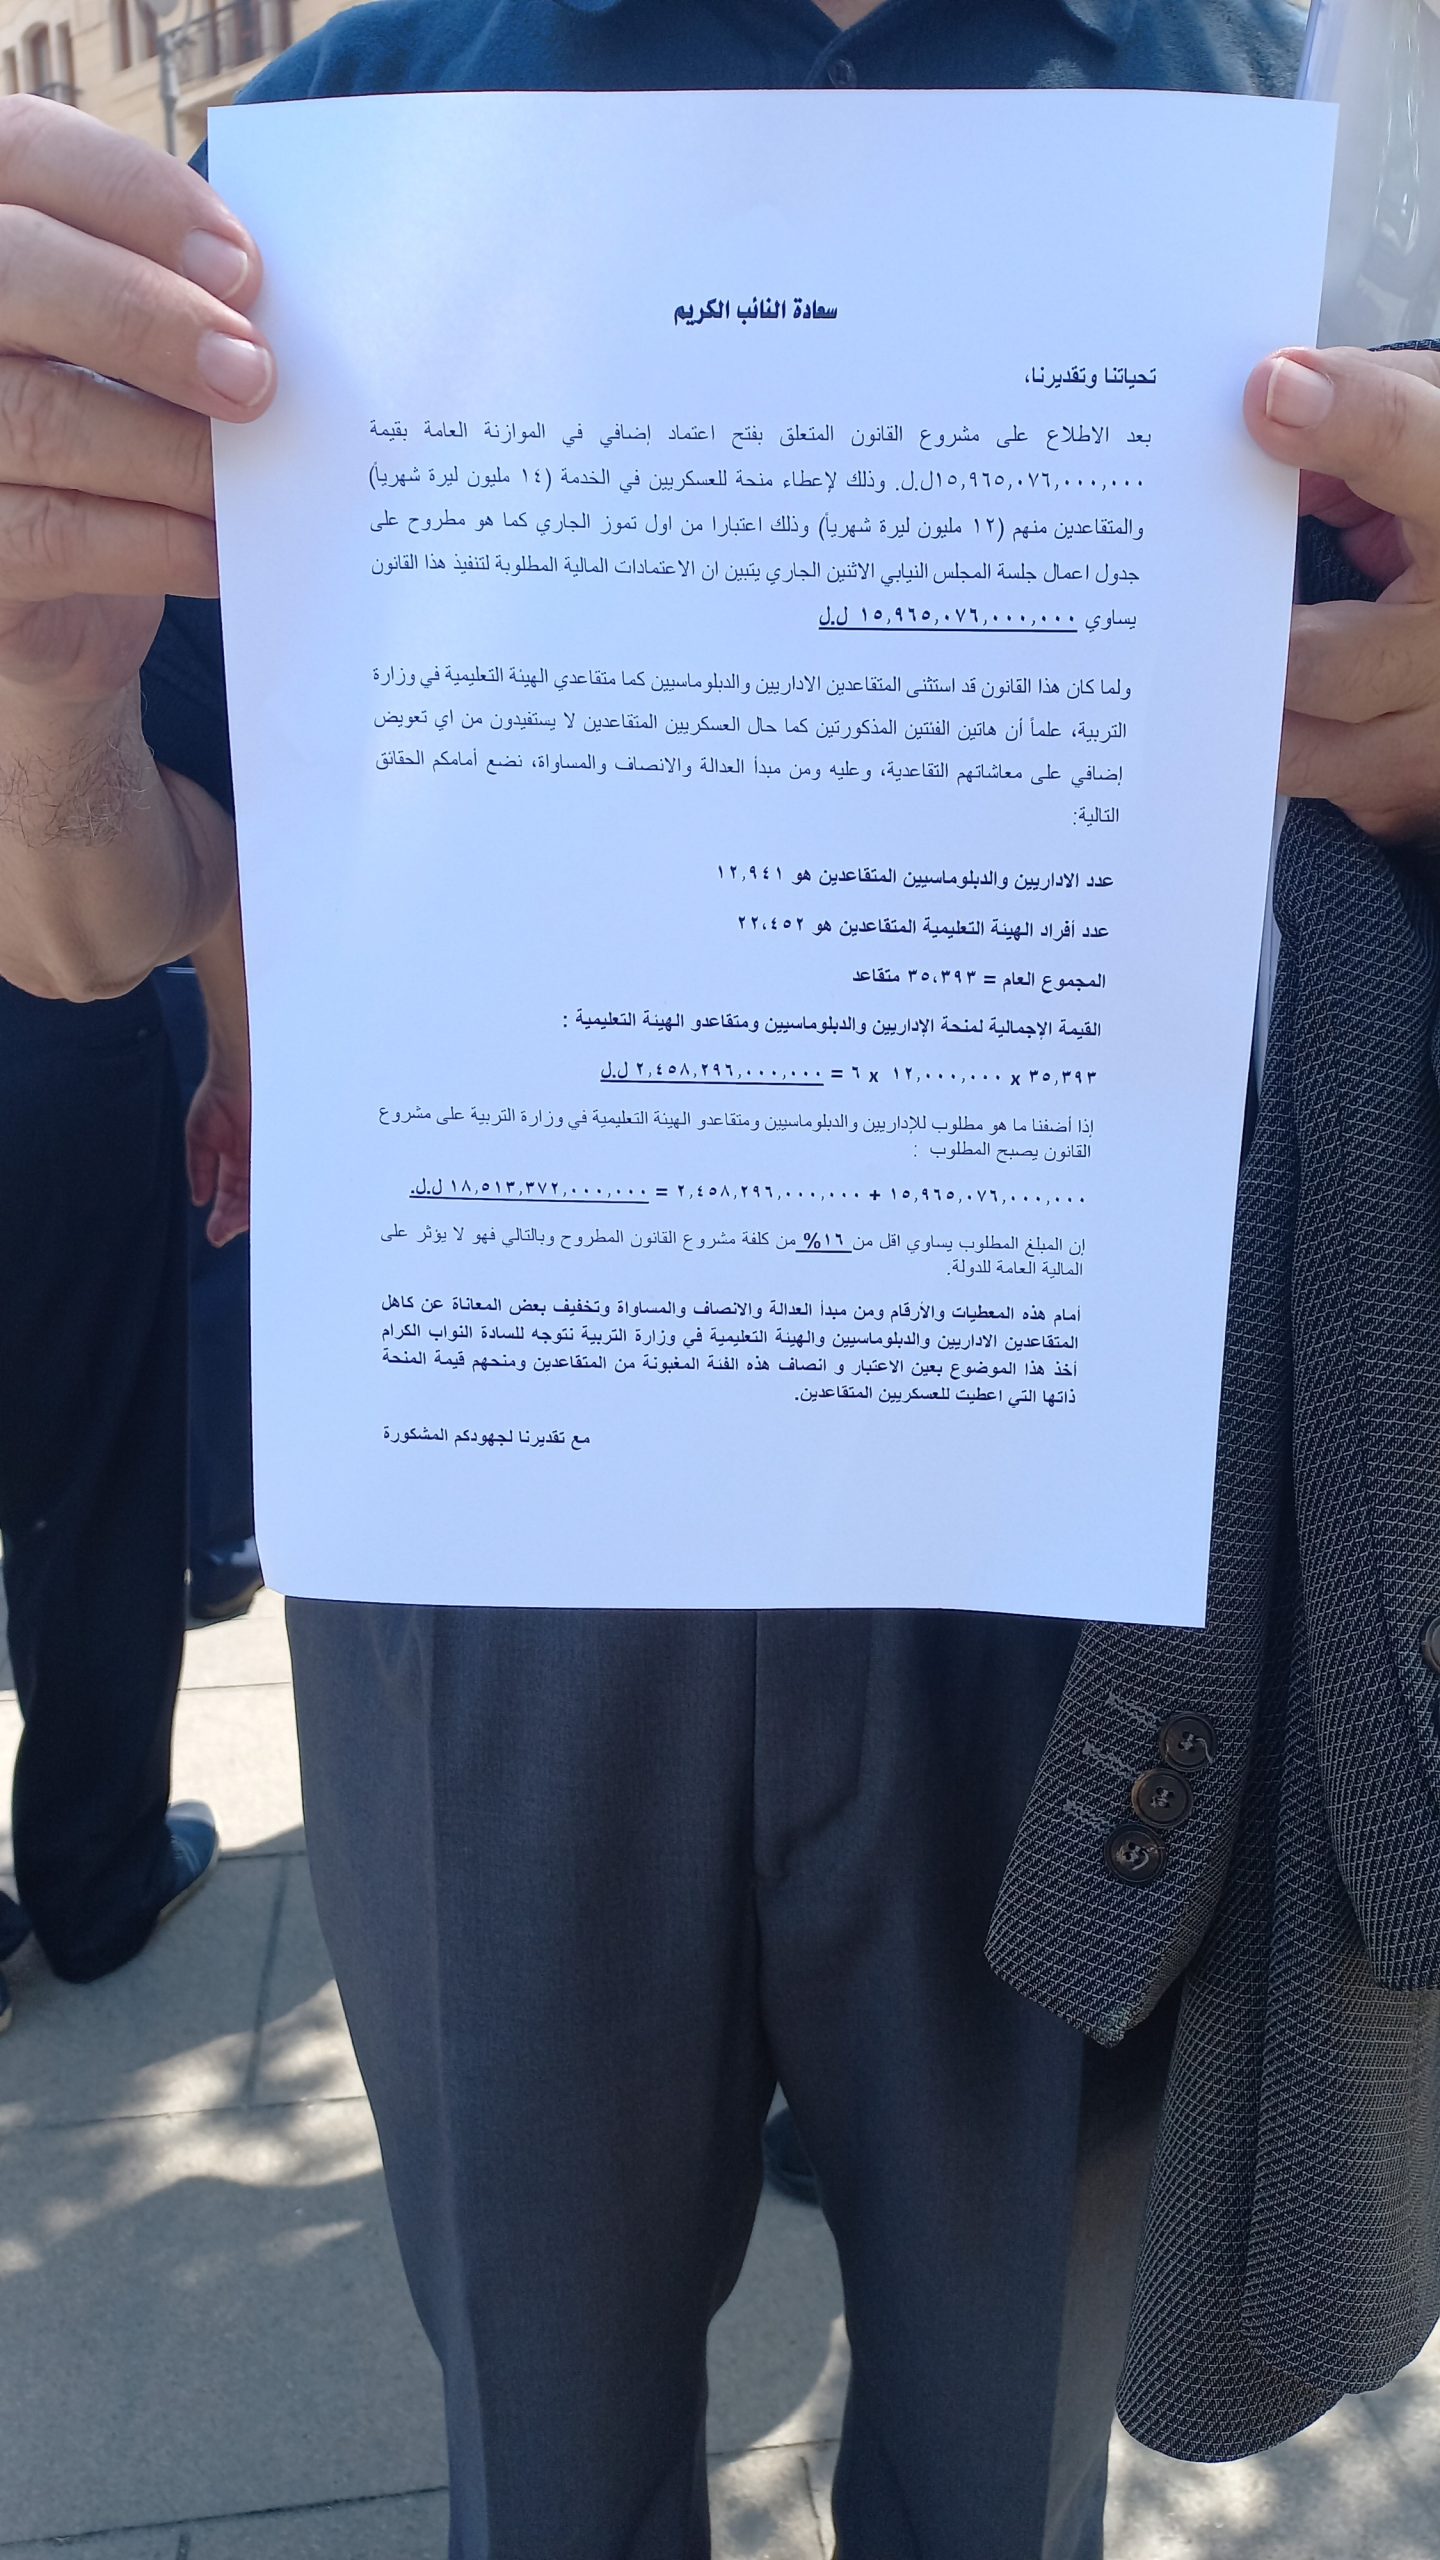 سعادة النائب الكريم
تحياتنا وتقديرنا،
بعد الاطلاع على مشروع القانون المتعلق بفتح اعتماد إضافي في الموازنة العامة بقيمة
١٥,٩٦٥,٠٧٦,٠٠٠,٠٠٠ل.ل. وذلك لإعطاء منحة للعسكريين في الخدمة (١٤ مليون ليرة شهرياً)
والمتقاعدين منهم (١٢ مليون ليرة شهرياً) وذلك اعتبارا من اول تموز الجاري كما هو مطروح على
جدول اعمال جلسة المجلس النيابي الاثنين الجاري يتبين ان الاعتمادات المالية المطلوبة لتنفيذ هذا القانون
يساوي ١٥,٩٦٥,٠٧٦,٠٠٠,٠٠٠ ل.ل
ولما كان هذا القانون قد استثنى المتقاعدين الاداريين والدبلوماسيين كما متقاعدي الهيئة التعليمية في وزارة
التربية، علماً أن هاتين الفئتين المذكورتين كما حال العسكريين المتقاعدين لا يستفيدون من اي تعويض
إضافي على معاشاتهم التقاعدية، وعليه ومن مبدأ العدالة والانصاف والمساواة، نضع أمامكم الحقائق
التالية:
عدد الاداريين والدبلوماسيين المتقاعدين هو ١٢,٩٤١
عدد أفراد الهيئة التعليمية المتقاعدين هو ٢٢،٤٥٢
المجموع العام = ٣٥،٣٩٣ متقاعد
القيمة الإجمالية لمنحة الإداريين والدبلوماسيين ومتقاعدو الهيئة التعليمية :
٣٥,٣٩٣ x ١٢,٠٠٠,٠٠٠ x ٦ = ٢,٤٥٨,٢٩٦,٠٠٠,٠٠٠ ل.ل
إذا أضفنا ما هو مطلوب للإداريين والدبلوماسيين ومتقاعدو الهيئة التعليمية في وزارة التربية على مشروع
القانون يصبح المطلوب :
١٥,٩٦٥,٠٧٦,٠٠٠,٠٠٠ + ٢,٤٥٨,٢٩٦,٠٠٠,٠٠٠ = ١٨,٥١٣,٣٧٢,٠٠٠,٠٠٠ ل.ل.
إن المبلغ المطلوب يساوي اقل من ١٦% من كلفة مشروع القانون المطروح وبالتالي فهو لا يؤثر على
المالية العامة للدولة.
أمام هذه المعطيات والأرقام ومن مبدأ العدالة والانصاف والمساواة وتخفيف بعض المعاناة عن كاهل
المتقاعدين الاداريين والدبلوماسيين والهيئة التعليمية في وزارة التربية نتوجه للسادة النواب الكرام
أخذ هذا الموضوع بعين الاعتبار و انصاف هذه الفئة المغبونة من المتقاعدين ومنحهم قيمة المنحة
ذاتها التي اعطيت للعسكريين المتقاعدين.
مع تقديرنا لجهودكم المشكورة